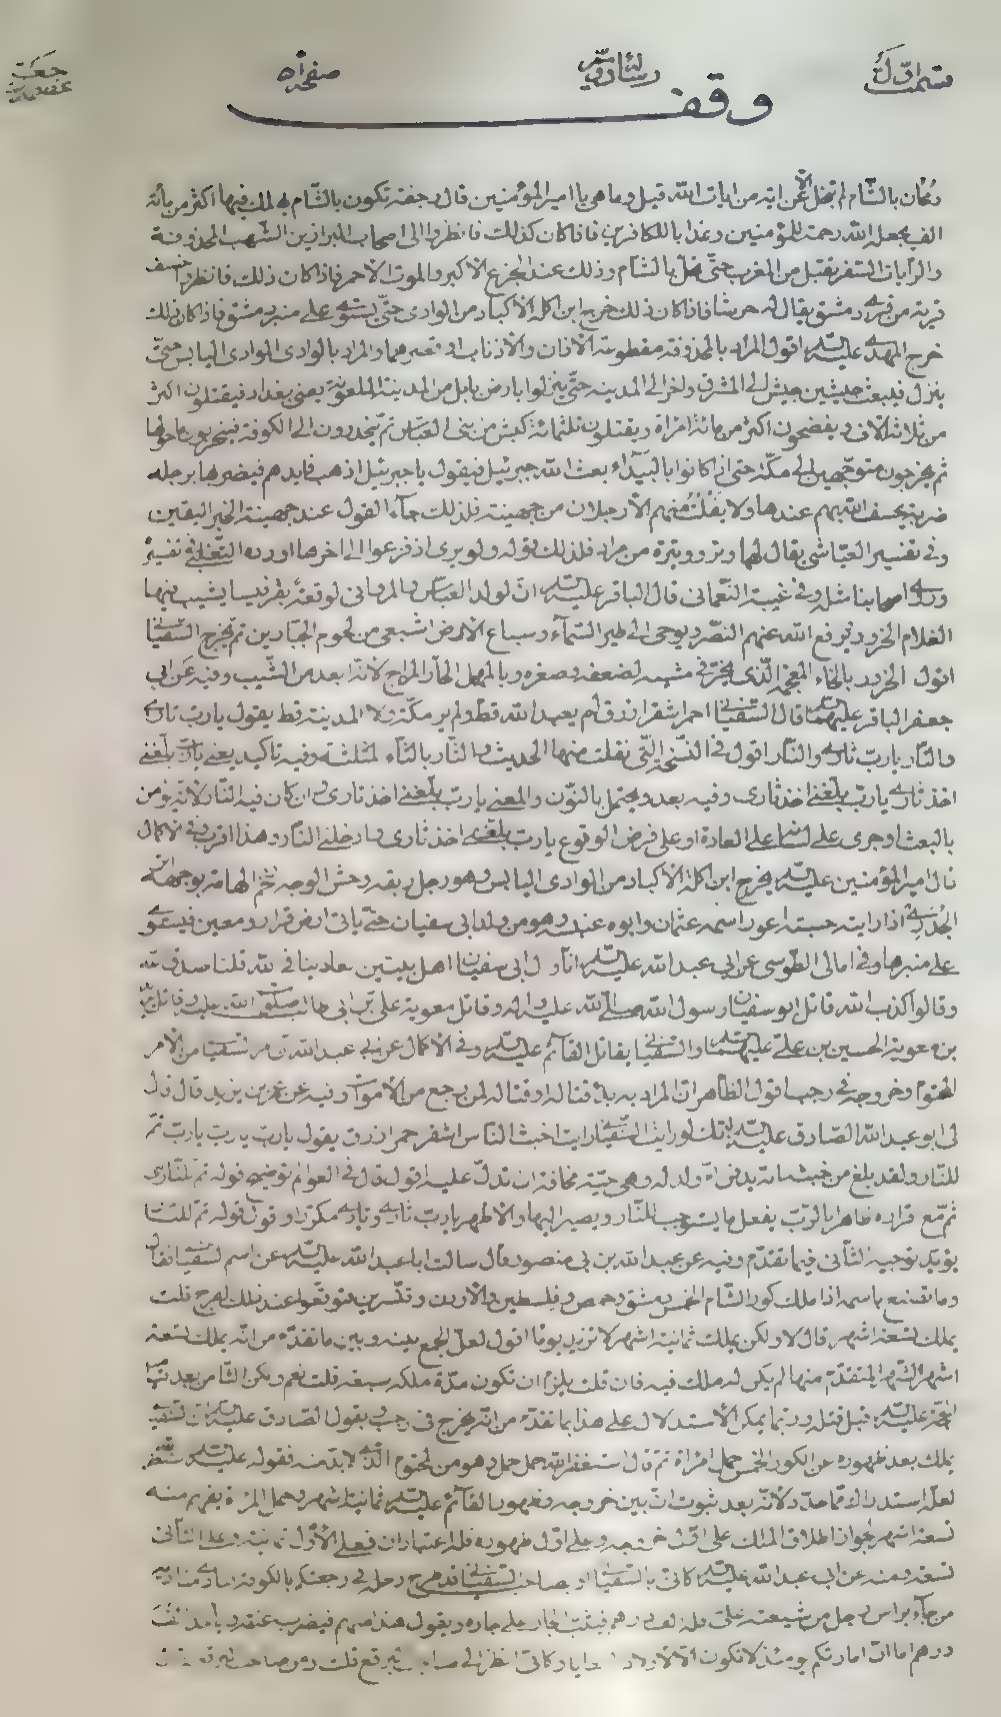 قسمت اول رسالة صفحه رجعت
وقف
بالشام لم تنجل الا عن اية من ايات الله قيل وما هي يا امير المؤمنين قال رجفة تكون بالشام يهلك فيها اكثر من مائة
الف يجعله الله رحمة للمؤمنين وعذابا للكافرين فاذا كان كذلك فانظروا الى اصحاب البراذين الشهب المحذوفة
والرايات الصفر يقبل من المغرب حتى تحل بالشام وذلك عند الجزع الاكبر والموت الاحمر فاذا كان ذلك فانظروا خسف
قرية من قرى دمشق يقال لها حرشا فاذا كان ذلك خرج ابن اكلة الاكباد من الوادى حتى يستوى على منبر دمشق فاذا كان ذلك
خرج المهدى عليه السلام اقول المراد بالمحذوفة مقطوعة الاذان والاذناب او والمراد بالوادى الوادى اليابس حتى
ينزل فيبعث جيشين جيش الى المشرق واخر الى المدينة حتى ينزلوا بارض بابل من المدينة الملعونة يعنى بغداد فيقتلون اكثر
من ثلاثة الاف ويفضحون اكثر من مائة امراة ويقتلون ثلثمائة كبش من بنى العباس ثم ينحدرون الى الكوفة فيخربون ما حولها
ثم يخرجون متوجهين الى مكة حتى اذا كانوا بالبيداء بعث الله جبرئيل فيقول يا جبرئيل اذهب فابدهم فيضربها برجله
ضربة يخسف الله بهم عندها ولا يفلت منهم الا رجلان من جهينة فلذلك جاء القول عند جهينة الخبر اليقين
وفى تفسير العياشى يقال لهما وتر ووتيرة من مراد فلذلك قوله ولو يرى اذ فزعوا الى اخرها اورده الثعلبى فى تفسيره
وروى اصحابنا مثله وفى غيبة النعمانى قال الباقر عليه السلام ان لولد العباس والمروانى لوقعة بقرقيسا يشيب فيها
الغلام الحزور ويرفع الله عنهم النصر ويوحى الى طير السماء وسباع الارض اشبعى من لحوم الجبارين ثم يخرج السفيانى
اقول الخزور بالخاء المعجمة الذى يخزر فى مشيه لضعفه وصغره وبالمهمل الحار المزاج لانه ابعد من الشيب وفيه عن ابى
جعفر الباقر عليهما السلام قال السفيانى احمر اشقر ازرق لم يعبد الله قط ولم ير مكة ولا المدينة قط يقول يا رب ثارى
والنار يا رب ثارى والنار اقول فى النسخة التى نقلت منها الحديث والثار بالثاء المثلثة وفيه تاكيد يعنى يا رب بلغنى
اخذ ثارى يا رب بلغنى اخذ ثارى وفيه بعد ويحتمل بالنون والمعنى يا رب بلغنى اخذ ثارى وان كان فيه النار لانه يؤمن
بالبعث او جرى على لسانه على العادة او على فرض الوقوع يا رب بلغنى اخذ ثارى وادخلنى النار وهذا اقرب وفى الاكمال
قال امير المؤمنين عليه السلام يخرج ابن اكلة الاكباد من الوادى اليابس وهو رجل ربعة وحش الوجه ضخم الهامة بوجهه اثر
الجدرى اذا رايته حسبته اعور اسمه عثمان وابوه عنبسة وهو من ولد ابى سفيان حتى ياتى ارض قرار ومعين فيستوى
على منبرها وفى امالى الطوسى عن ابى عبد الله عليه السلام انا وال ابى سفيان اهل بيتين تعادينا فى الله قلنا صدق الله
وقالوا كذب الله قاتل ابو سفيان رسول الله صلى الله عليه واله وقاتل معوية على بن ابى طالب صلوات الله عليه وقاتل يزيد
بن معوية الحسين بن على عليهما السلام والسفيانى يقاتل القائم عليه السلام وفى الاكمال عن ابى عبد الله ان امر السفيانى من الامر
المحتوم وخروجه فى رجب اقول الظاهر ان المراد به بدء قتاله او قتاله لمن يرجع من الاموات وفيه عن عمر بن يزيد قال قال
لى ابو عبد الله الصادق عليه السلام انك لو رايت السفيانى رايت اخبث الناس اشقر احمر ازرق يقول يا رب يا رب يا رب ثم
للنار ولقد بلغ من خبثه انه يدفن ام ولد له وهى حية مخافة ان تدل عليه اقول قال فى العوالم توضيح قوله ثم للنار اى
ثم مع قراره ظاهرا بالرب يفعل ما يستوجب للنار ويصير اليها والاظهر يا رب ثارى وثارى مكررا اقول قوله ثم للنار
يؤيد توجيه الثانى فيما تقدم وفيه عن عبد الله بن ابى منصور قال سالت ابا عبد الله عليه السلام عن اسم السفيانى فقال
وما تصنع باسمه اذا ملك كور الشام الخمس دمشق وحمص وفلسطين والاردن وقنسرين فتوقعوا عند ذلك الفرج قلت
يملك تسعة اشهر قال لا ولكن يملك ثمانية اشهر لا تزيد يوما اقول لعل الجمع بينه وبين ما تقدم من انه يملك تسعة
اشهر الشهر المتقدم منها لم يكن له ملك فيه فان قلت يلزم ان تكون مدة ملكه سبعة قلت نعم ويكن الثامن بعد
عليه السلام قبل قتله وربما يمكن الاستدلال على هذا بما تقدم من انه يخرج فى رجب بقول الصادق عليه السلام ان السفيانى
يملك بعد ظهوره على الكور الخمس حمل امراة ثم قال استغفر الله حمل جمل وهو من المحتوم الذى لا بد منه فقوله عليه السلام استغفر
لعله استدراك مما حد ولانه بعد ثبوت ان بين خروجه وظهور القائم عليه السلام ثمانية اشهر وحمل المراة يفهم منه
تسعة اشهر لجواز اطلاق الملك على اول خروجه وعلى اول ظهوره فله اعتباران فعلى الاول ثمانية وعلى الثانى
تسعة ومنه عن ابى عبد الله عليه السلام كانى بالسفيانى او بصاحب السفيانى قد طرح رحله فى رحبتكم بالكوفة فنادى مناديه
من جاء براس رجل من شيعة على فله الف درهم فيثب الجار على جاره ويقول هذا منهم فيضرب عنقه وياخذ الف
درهم اما ان امارتكم يومئذ لا تكون الا لاولاد البغايا وكانى انظر الى صاحب البرقع قلت ومن صاحب البرقع